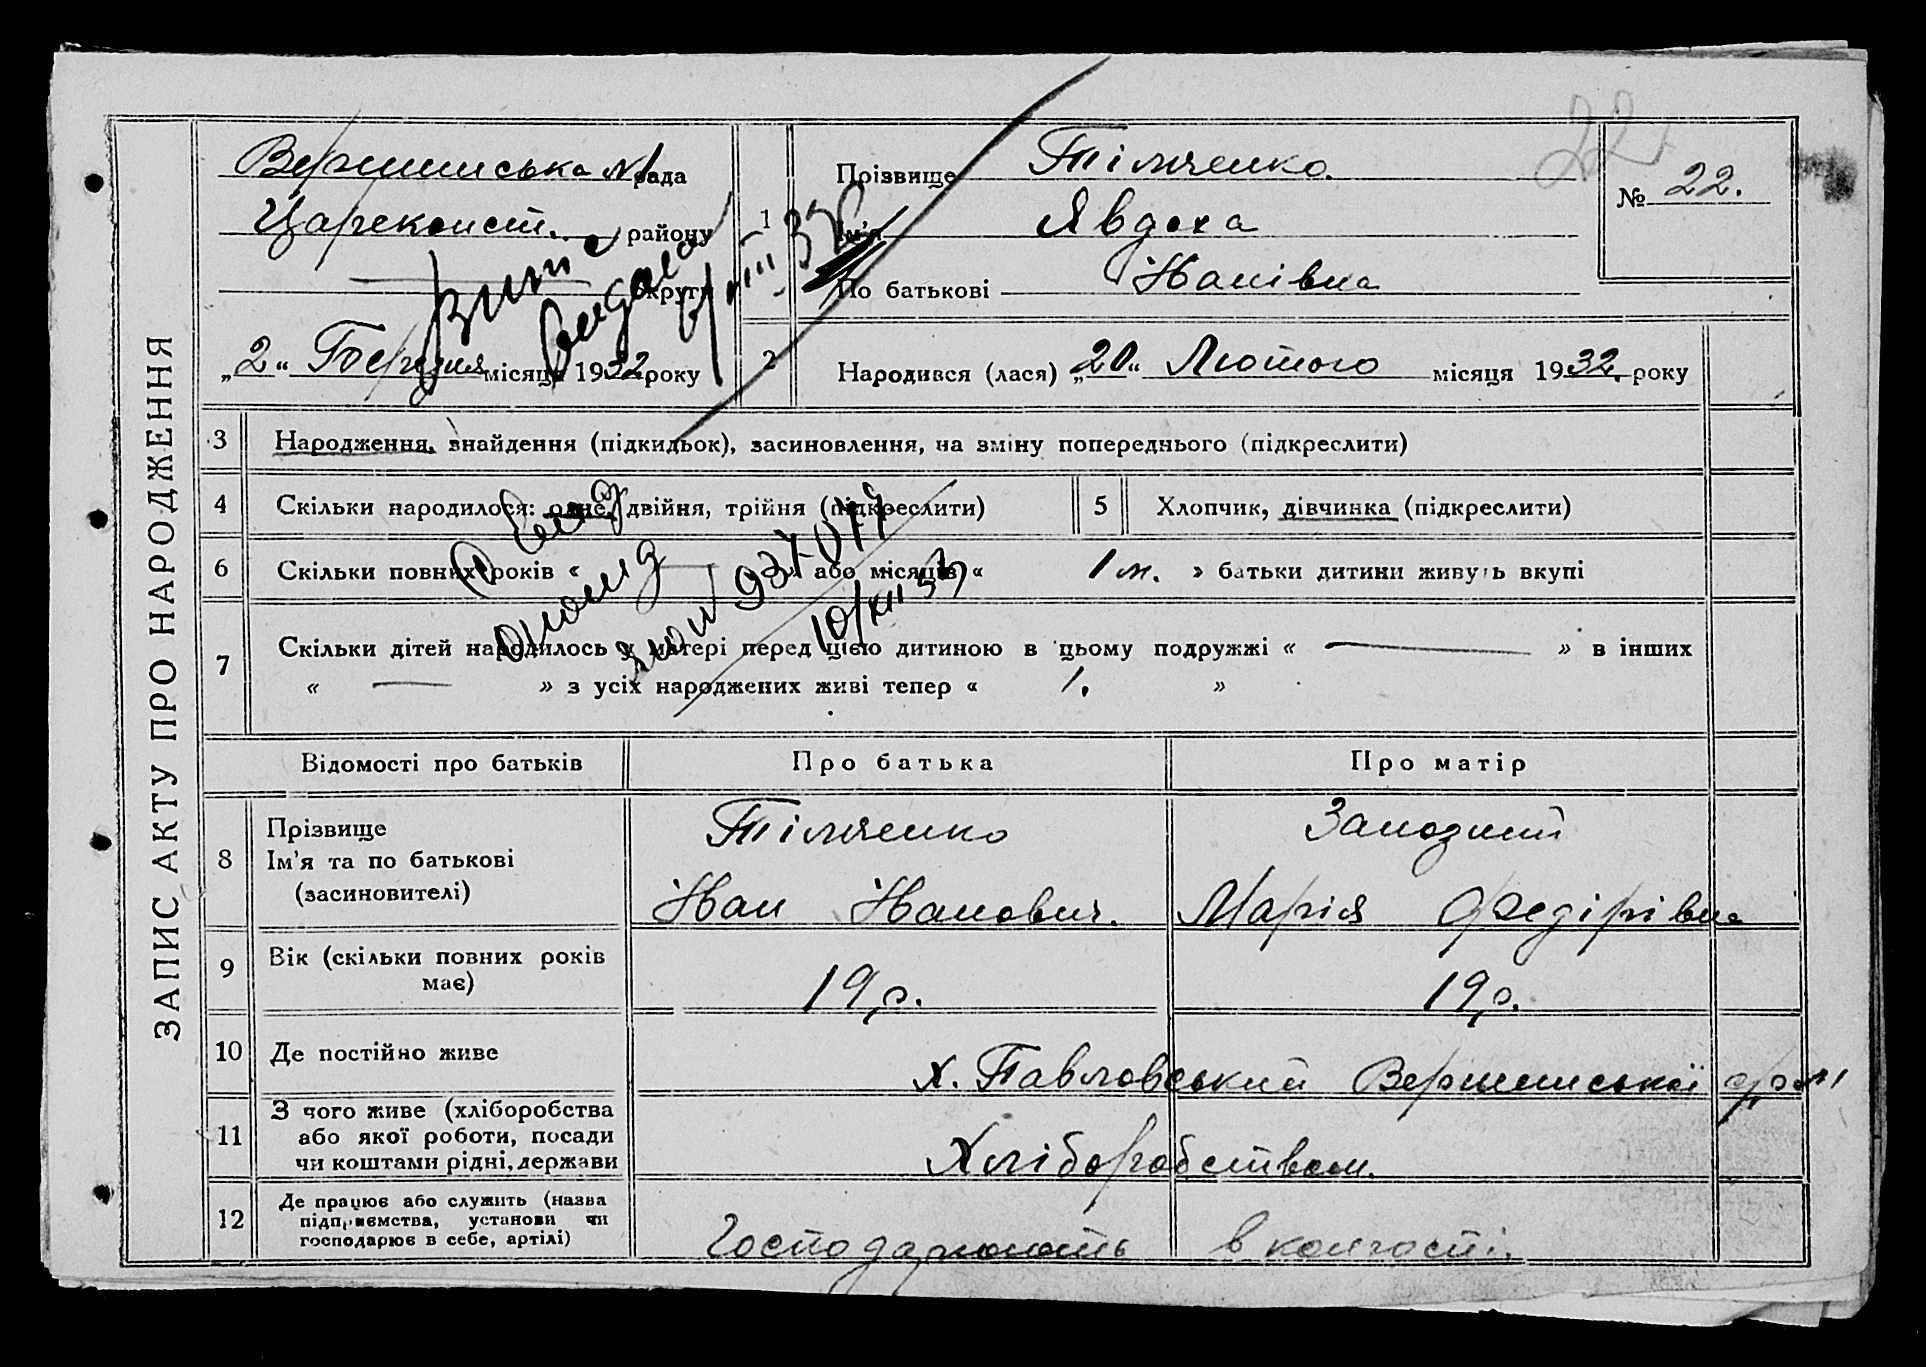 ЗАПИС АКТУ ПРО НАРОДЖЕННЯ
22
Вершинська №1 рада
Цареконст. району
округи
„2“ Березня місяця 1932 року
Випис
видано
1
Прізвище Тільченко
Ім'я Явдоха
По батькові Іванівна
№ 22.
2
Народився (лася) „20“ Лютого місяця 1932 року
3 Народження, знайдення (підкидьок), засиновлення, на зміну попереднього (підкреслити)
4 Скільки народилося: одне, двійня, трійня (підкреслити)
5 Хлопчик, дівчинка (підкреслити)
6 Скільки повних років « — » або місяців « 1 м. » батьки дитини живуть вкупі
7 Скільки дітей народилось у матері перед цією дитиною в цьому подружжі « — » в інших
« — » з усіх народжених живі тепер « 1. »
10/XII 53
Відомості про батьків Про батька Про матір
8 Прізвище
Ім'я та по батькові
(засиновителі)
Тільченко
Іван Іванович.
Марія Федірівна
9 Вік (скільки повних років
має)
19 р. 19 р.
10 Де постійно живе х. Павловський Вершинської с/р №1
11 З чого живе (хліборобства
або якої роботи, посади
чи коштами рідні, держави
Хліборобством.
12 Де працює або служить (назва
підприємства, установи чи
господарює в себе, артілі)
Господарюють в колгоспі.